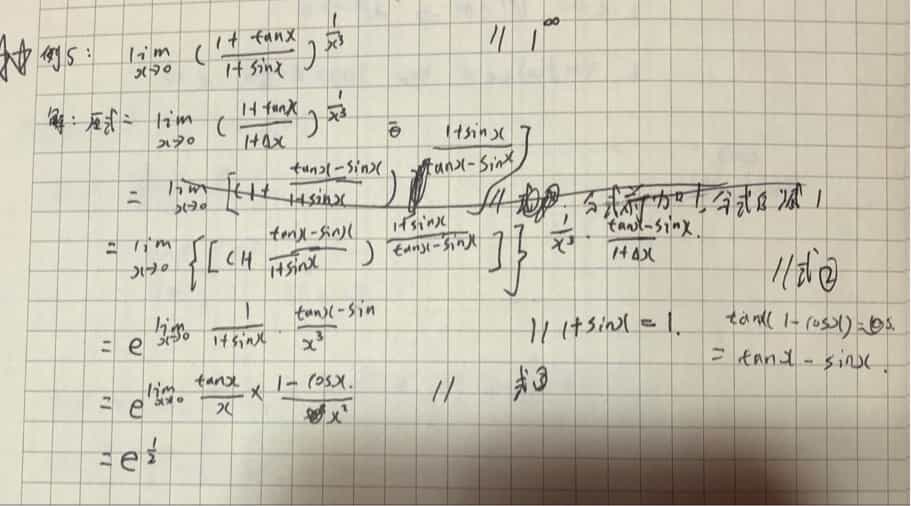 例5: lim x→0 ( (1+tanx)/(1+sinx) )^(1/x³) // 1^∞
解: 原式 = lim x→0 ( (1+tanx)/(1+Δx) )^(1/x³)
= lim x→0 [ (1+ (tanx-sinx)/(1+sinx) )^((1+sinx)/(tanx-sinx)) ] //
= lim x→0 { [ (1+ (tanx-sinx)/(1+sinx) )^((1+sinx)/(tanx-sinx)) ] }^(1/x³ · (tanx-sinx)/(1+Δx)) // 式②
= e^(lim x→0 1/(1+sinx) · (tanx-sin)/x³) // 1+sinx=1. tanx(1-cosx)=
= tanx - sinx.
= e^(lim x→0 tanx/x × (1-cosx.)/x²) // 式③
= e^(1/2)